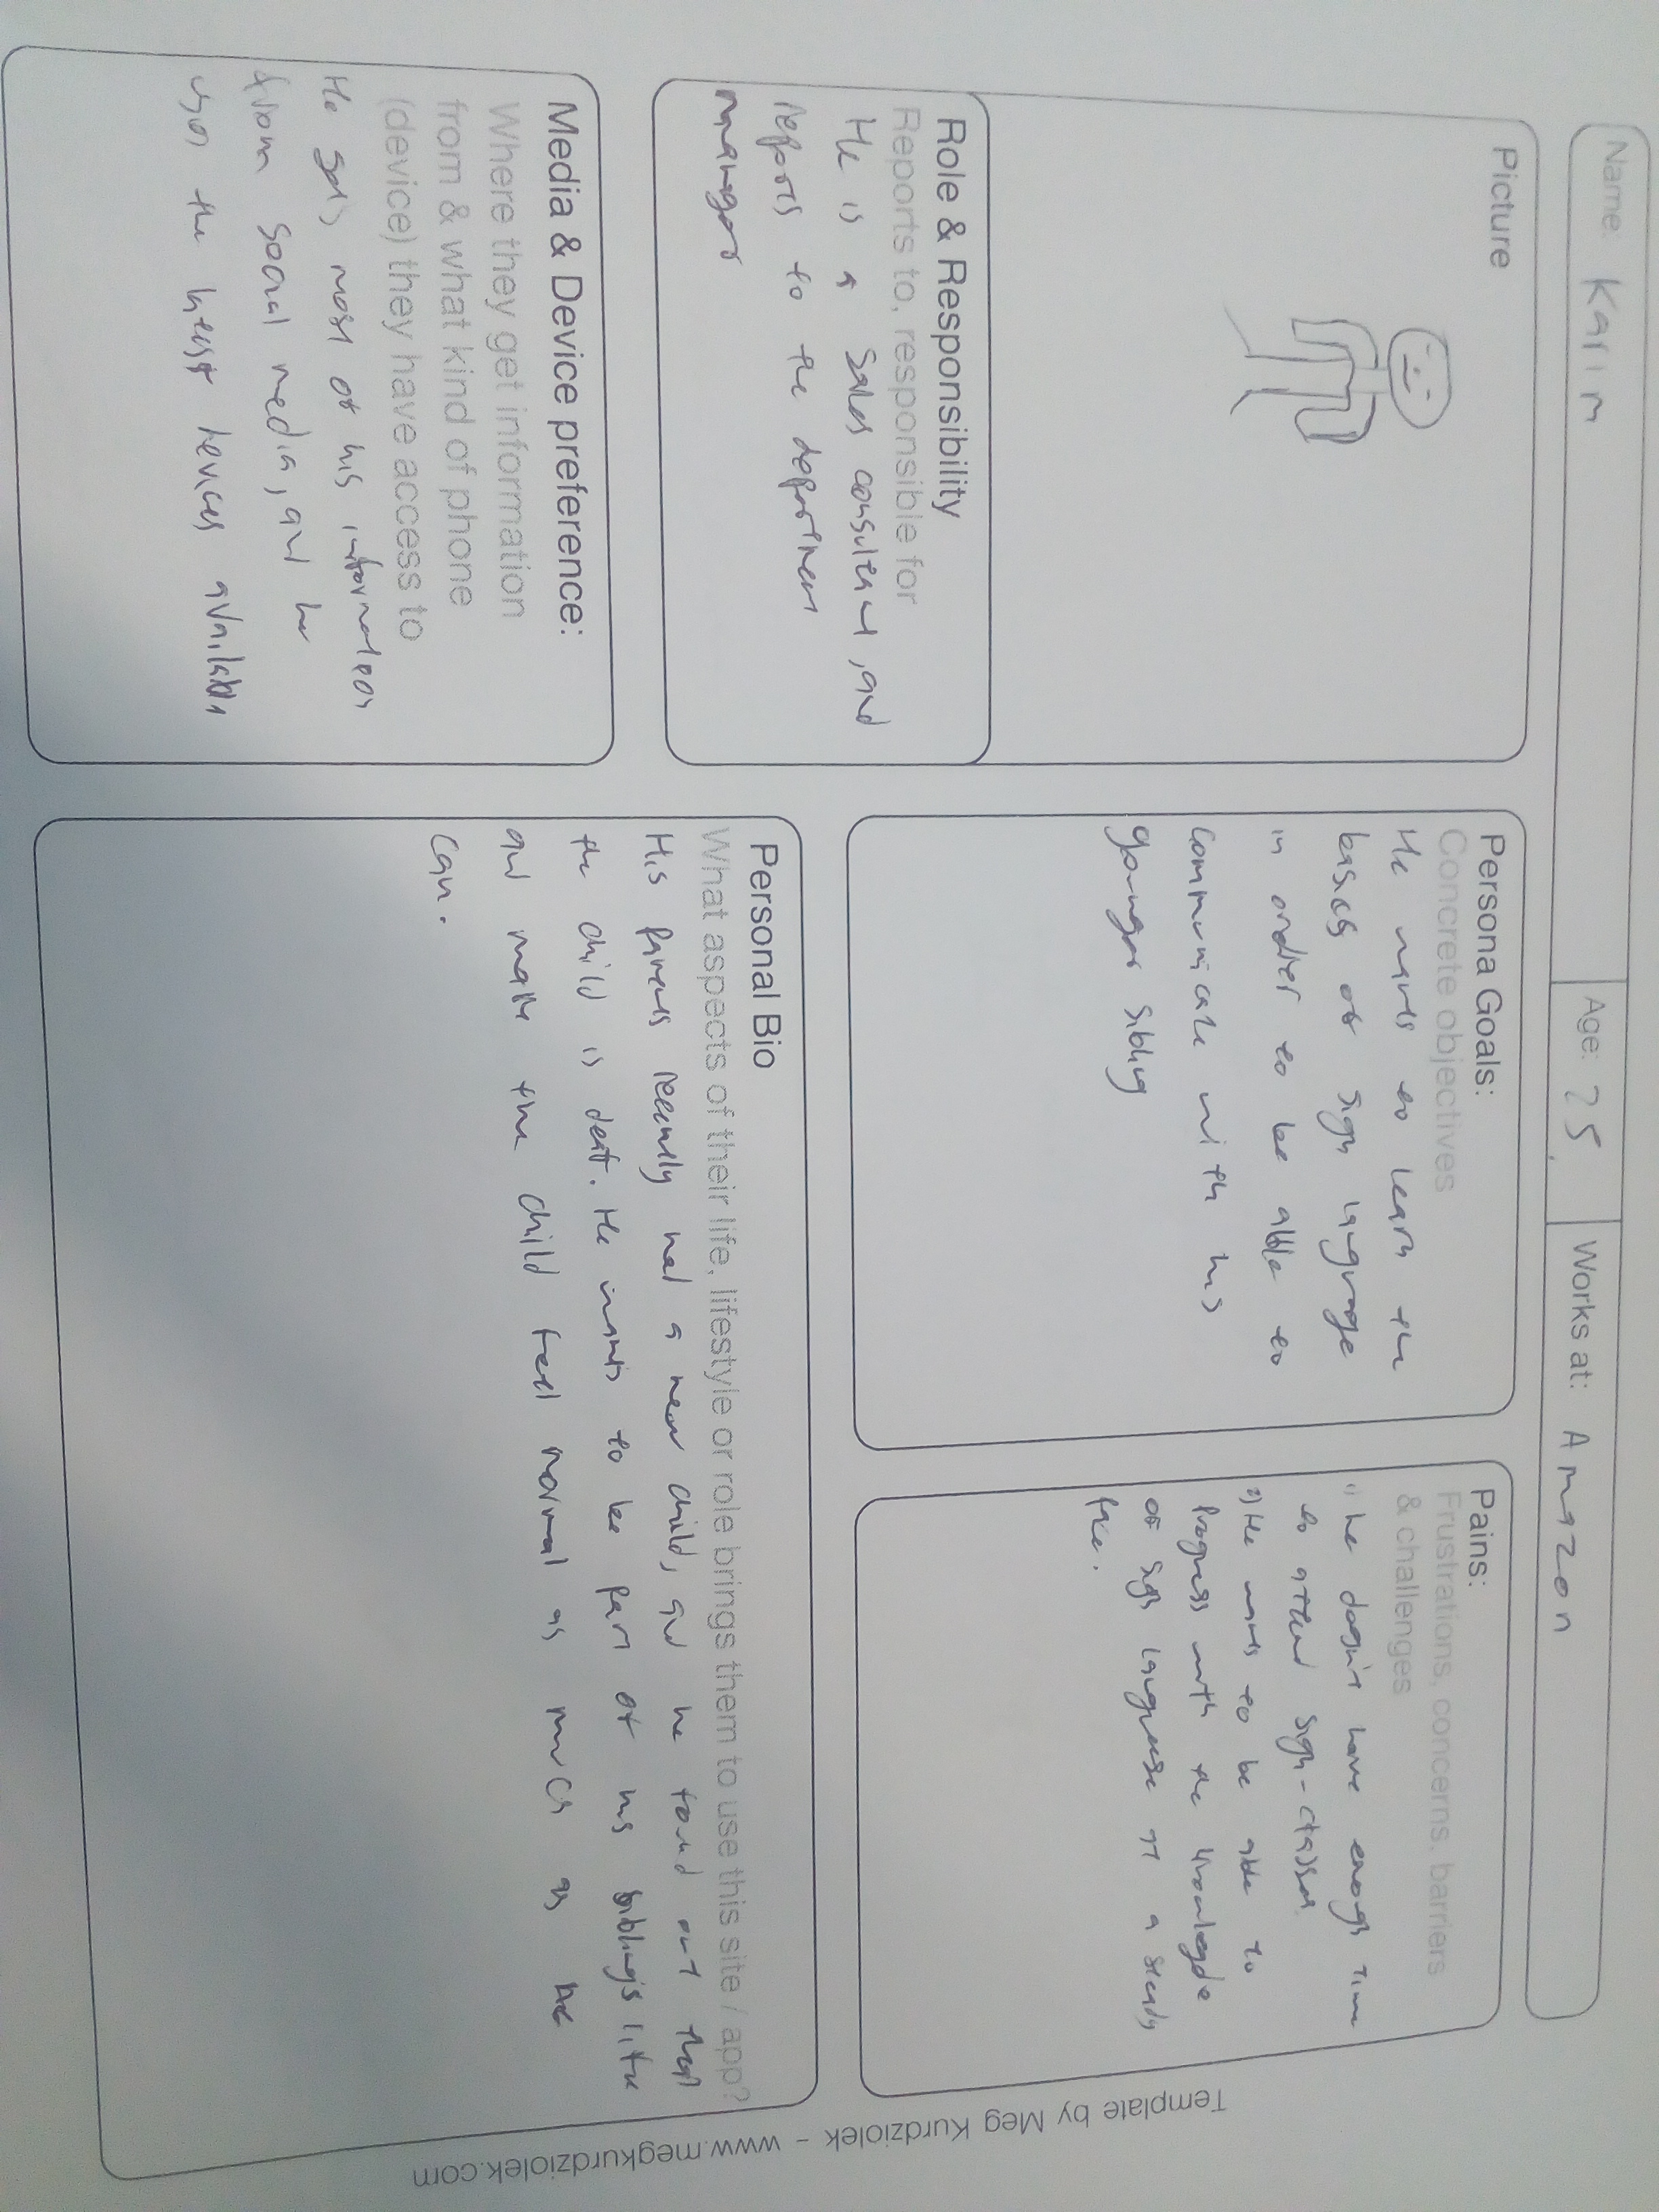 Name: Karim
Age: 25
Works at: Amazon
Picture
Role & Responsibility
Reports to, responsible for
He is a Sales consultant, and
reports to the department
manager
Media & Device preference:
Where they get information
from & what kind of phone
(device) they have access to
He gets most of his information
from social media, and he
uses the latest devices available
Persona Goals:
Concrete objectives
He wants to learn the
basics of sign language
in order to be able to
communicate with his
younger sibling
Pains:
Frustrations, concerns, barriers
& challenges
1) he doesn't have enough time
to attend sign-classes
2) He wants to be able to
progress with the knowlegde
of sign language at a steady
pace.
Personal Bio
What aspects of their life, lifestyle or role brings them to use this site / app?
His parents recently had a new child, and he found out that
the child is deaf. He wants to be part of his sibling's life
and make the child feel normal as much as he
can.
Template by Meg Kurdziolek - www.megkurdziolek.com